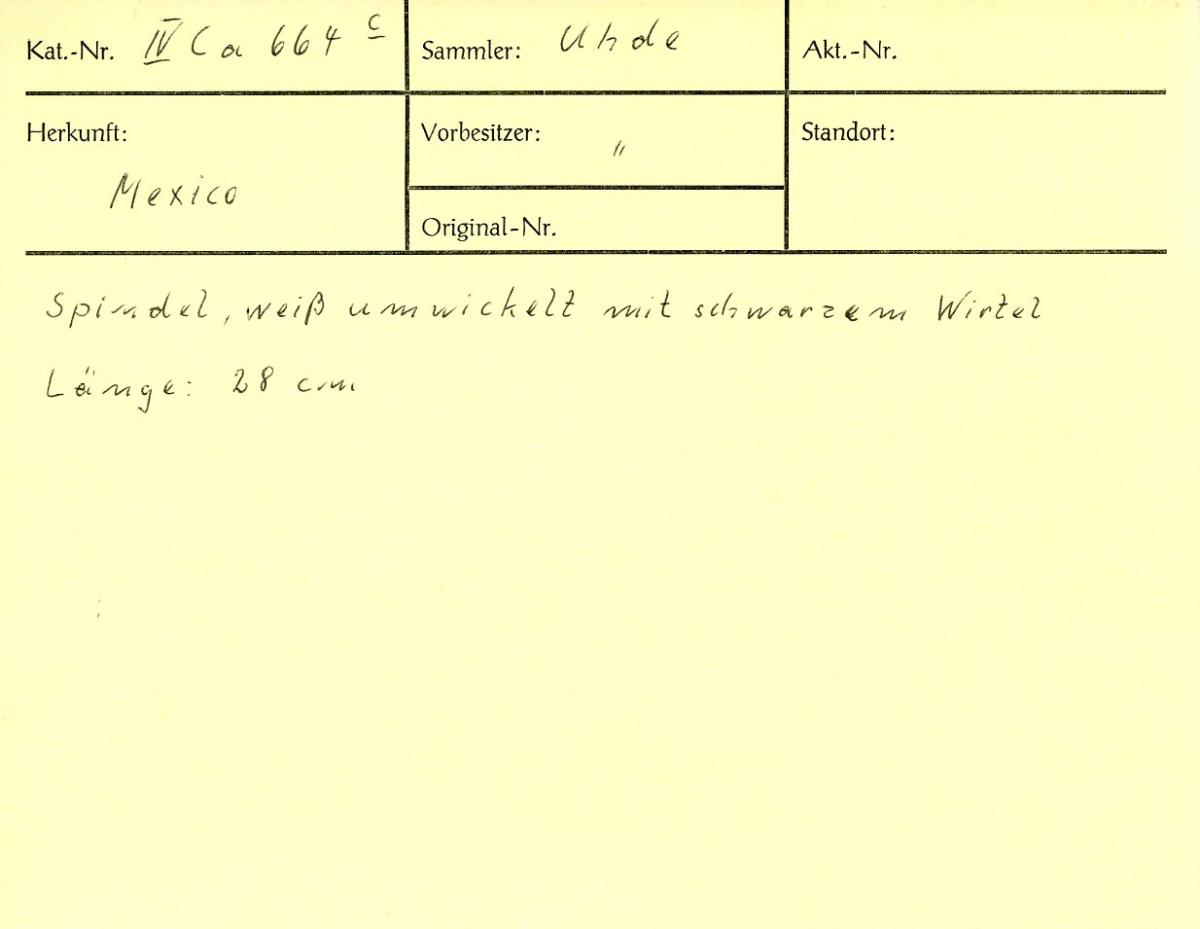 Kat.-Nr. IV Ca 664 c
Sammler: Uhde
Akt.-Nr.
Herkunft:
Mexico
Vorbesitzer: "
Original-Nr.
Standort:
Spindel, weiß umwickelt mit schwarzem Wirtel
Länge: 28 cm